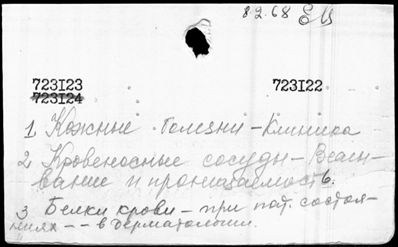 82.68 ЕЦ
723I23 723I22
723I24
1. Кожные болезни – Клиника
2. Кровеносные сосуды – Всасы-
вание и проницаемость.
3. Белки крови – при пат. состоя-
ниях – – в дерматологии.